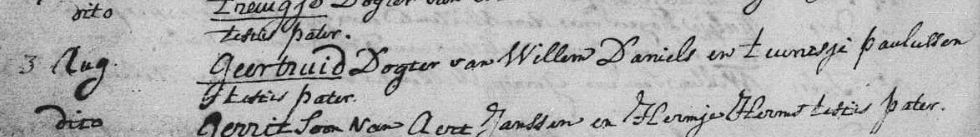 dito Dogter van
testis pater.
3 Aug. Geertruid Dogter van Willem Daniels en teunesje paulussen
testis pater.
dito Gerrit Soon van Aert Janssen en Hermje Herms testis pater.